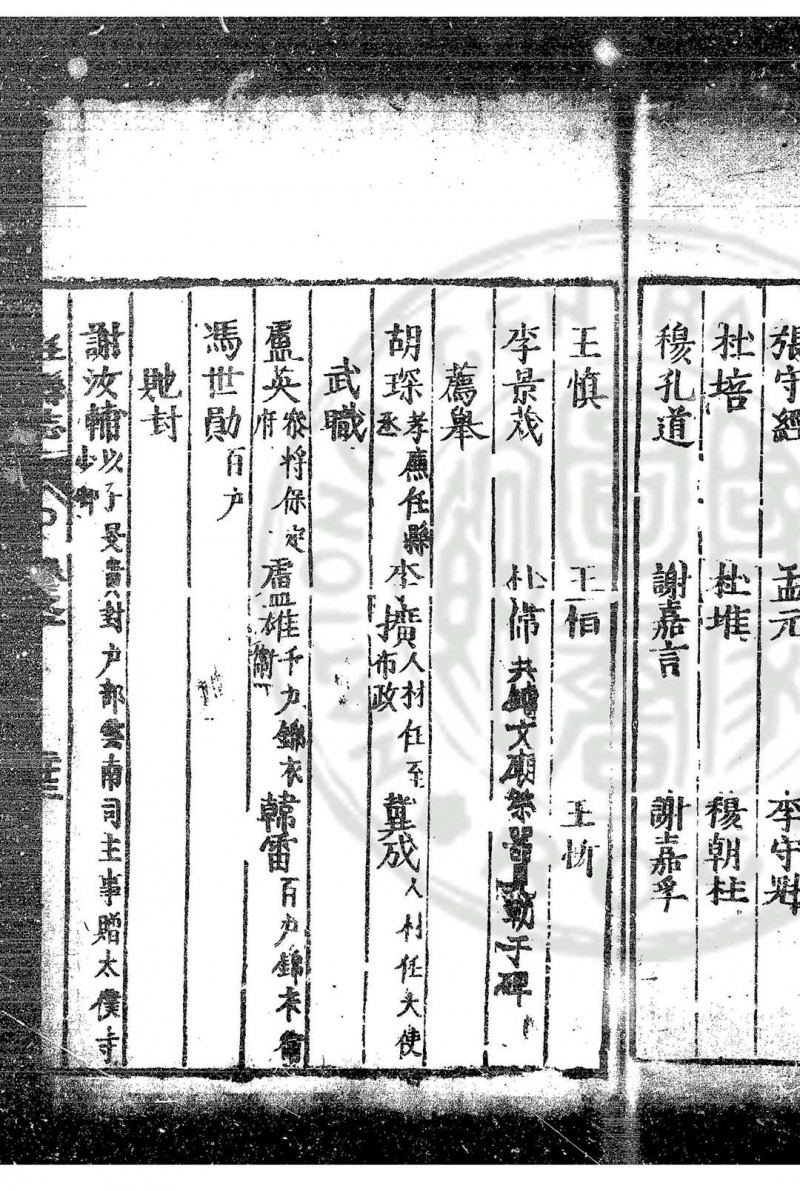 張守經 孟元 李守點
杜培 杜堆 穆朝柱
穆孔道 謝嘉言 謝嘉孚
王慎 王恒 王忻
李景茂 杜偁 共 文廟祭器見勒于碑
薦舉
胡琛孝廉任縣丞 李擴人材任至布政 冀成人材任大使
武職
盧英叅將保定府 盧雄千户錦衣衛 韓雷百户錦衣衛
馮世勛百户
貤封
謝汝輔以子旻貴封户部雲南司主事贈太僕寺少卿